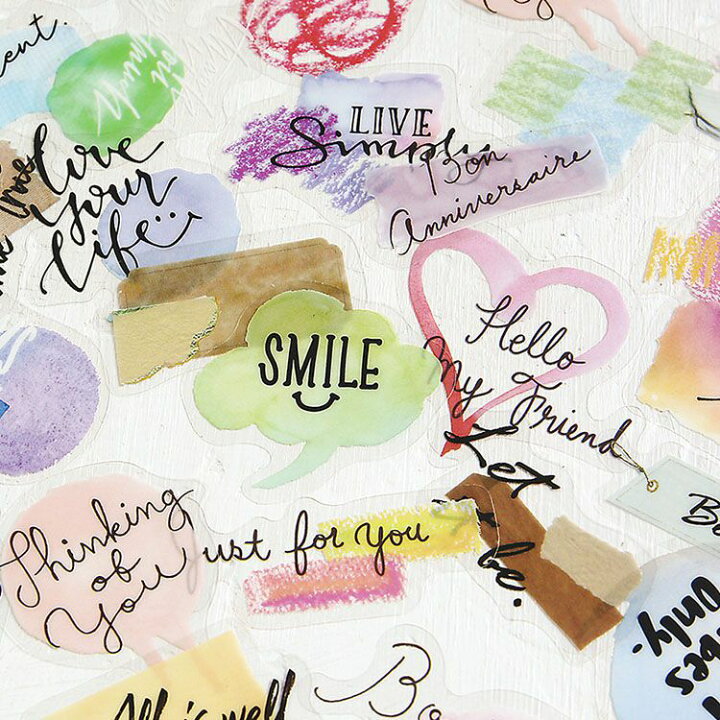 LIVE
Simply
Bon
Anniversaire
Love
Your
Life
SMILE
Hello
my Friend
Let
it be.
Thinking
of
You
Just for You
All is well
Only